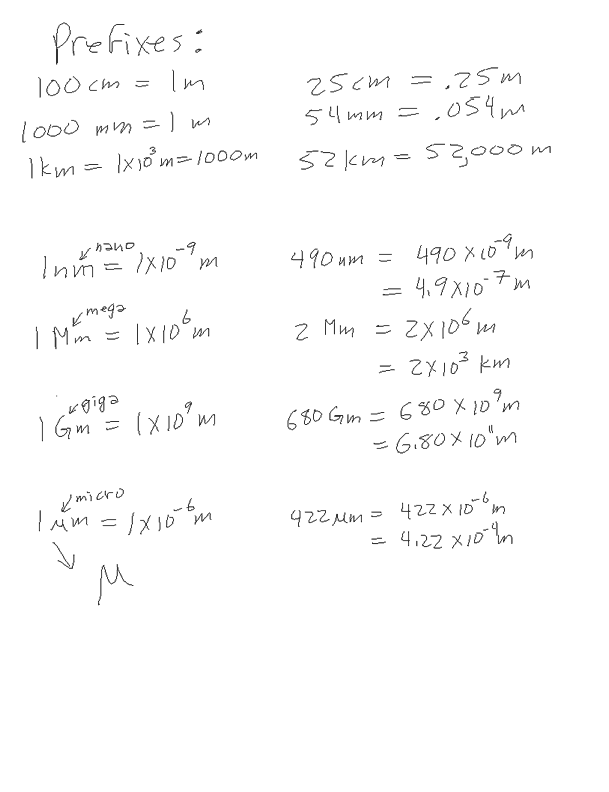 Prefixes:
100 cm = 1 m
25 cm = .25 m
1000 mm = 1 m
54 mm = .054 m
1 km = 1×10³ m = 1000 m
52 km = 52,000 m
nano
1 nm = 1×10⁻⁹ m
490 nm = 490 × 10⁻⁹ m
= 4.9×10⁻⁷ m
mega
1 Mm = 1×10⁶ m
2 Mm = 2×10⁶ m
= 2×10³ km
giga
1 Gm = 1×10⁹ m
680 Gm = 680 × 10⁹ m
= 6.80 × 10¹¹ m
micro
1 μm = 1×10⁻⁶ m
422 μm = 422 × 10⁻⁶ m
= 4.22 × 10⁻⁴ m
μ